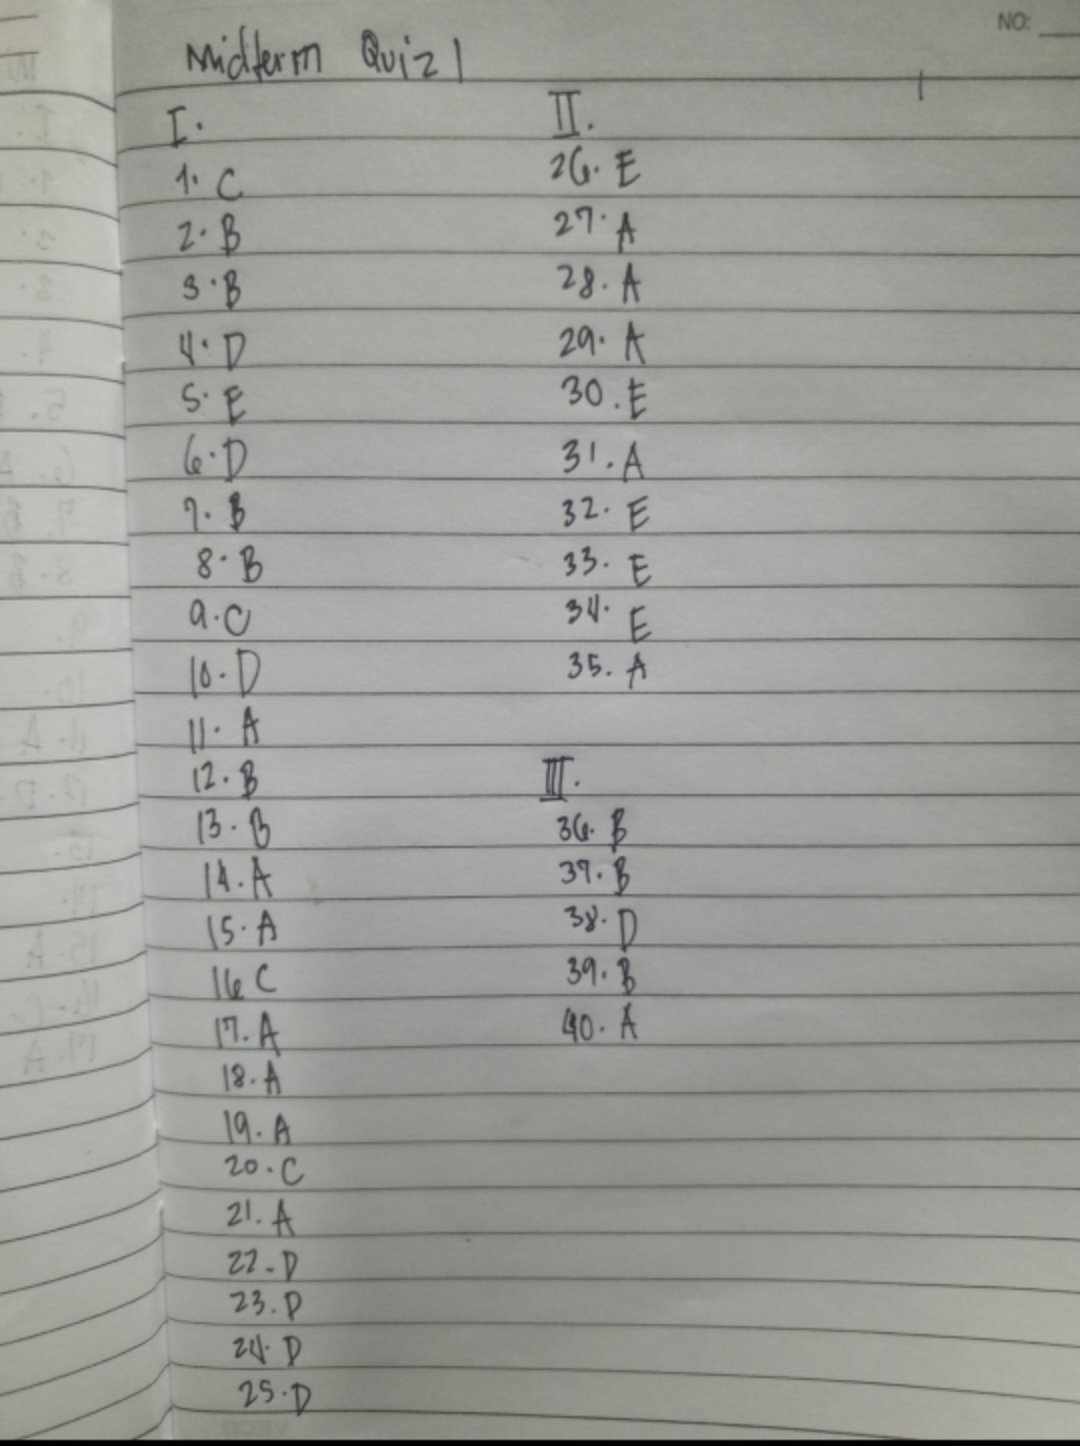 NO:
Midterm Quiz 1
I.
1. C
2. B
3. B
4. D
5. E
6. D
7. B
8. B
9. C
10. D
11. A
12. B
13. B
14. A
15. A
16 C
17. A
18. A
19. A
20. C
21. A
22. D
23. D
24. D
25. D
II.
26. E
27. A
28. A
29. A
30. E
31. A
32. E
33. E
34. E
35. A
III.
36. B
37. B
38. D
39. B
40. A